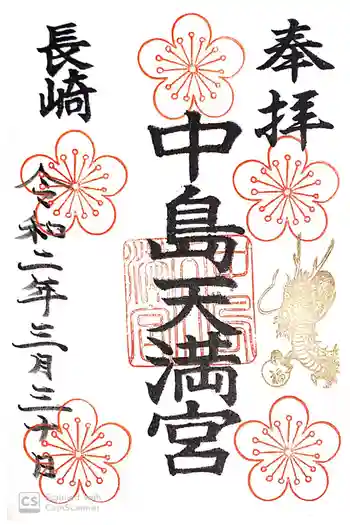 奉拝
中島天満宮
長崎
令和二年三月三十日
CS Scanned with
CamScanner